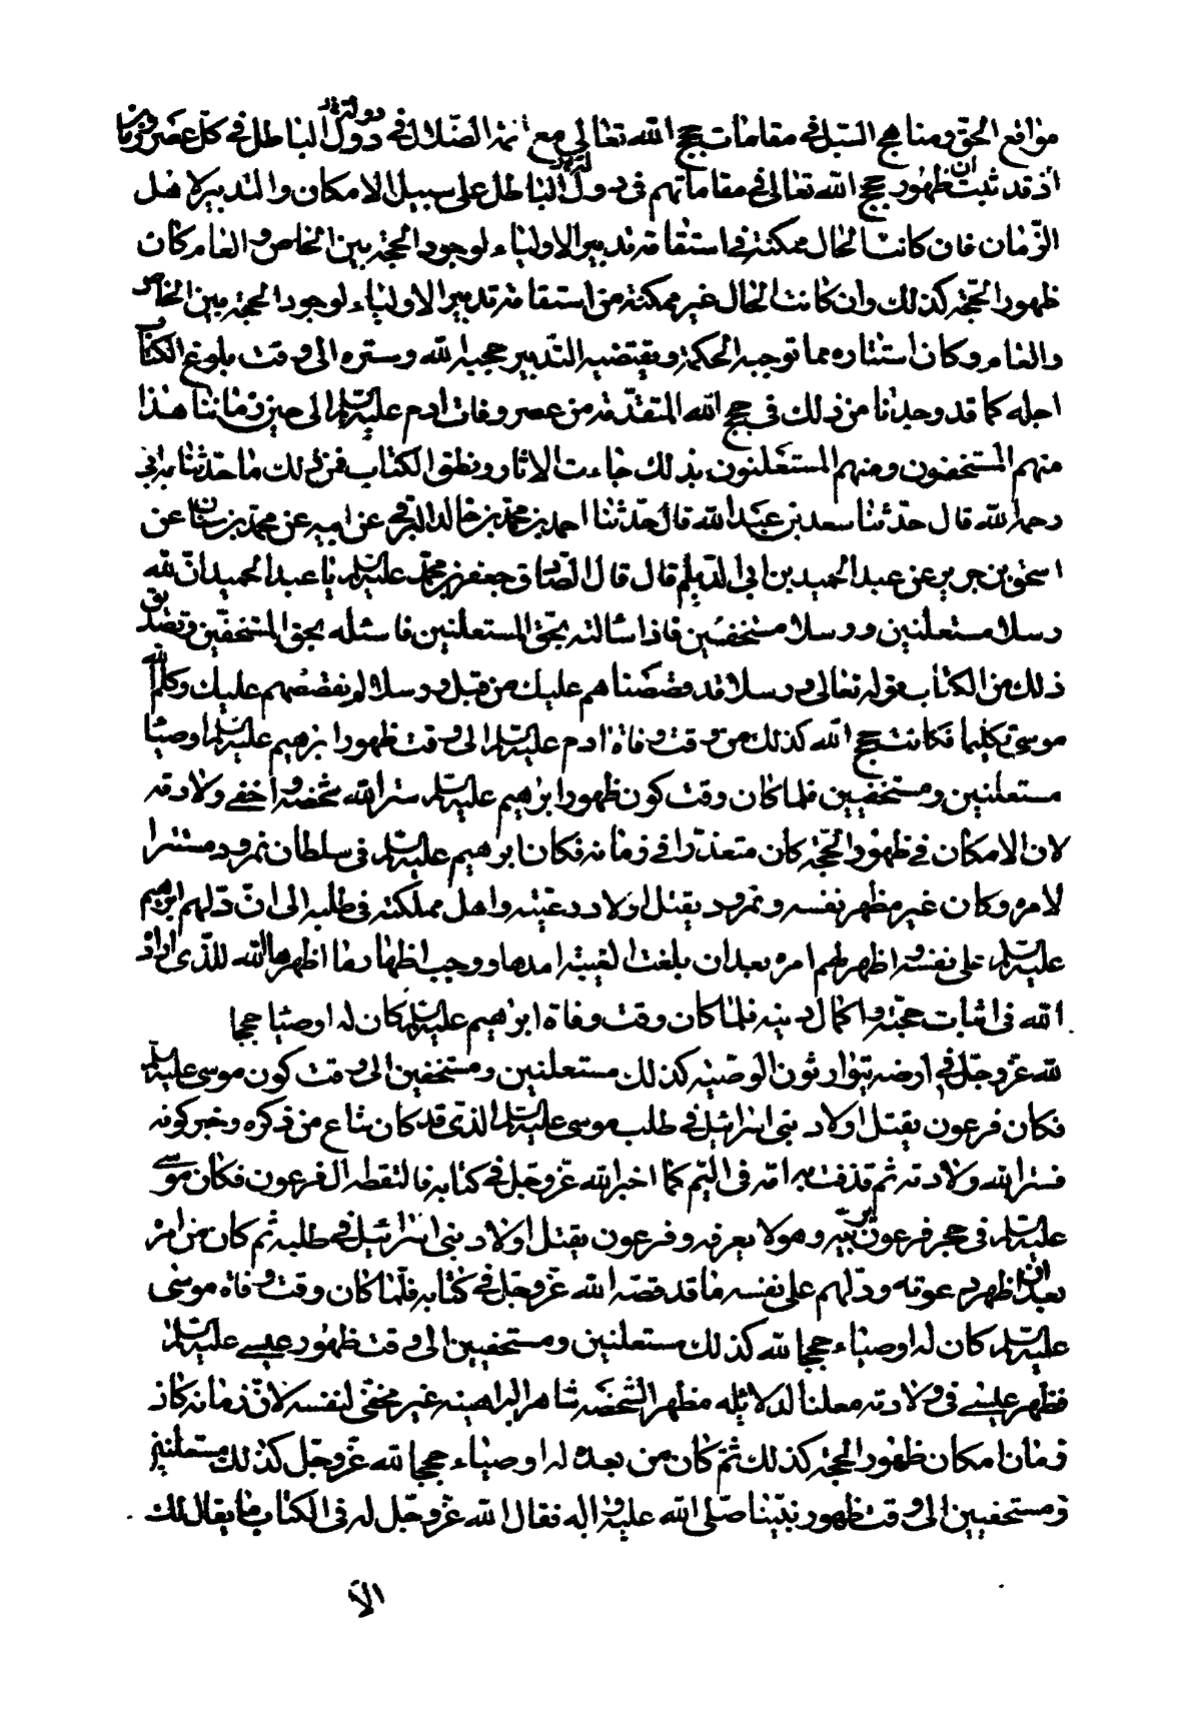 مواقع الحق ومناهج السبل في مقامات حجج الله تعالى مع ائمة الضلال في دول الباطل في كل عصر وزمان
اذ قد ثبت ان ظهور حجج الله تعالى في مقاماتهم في دولة الباطل على سبيل الامكان والتدبير لاهل
الزمان فان كانت الحال ممكنة في استقامة تدبير الاولياء لوجود الحجة بين الخاص والعام كان
ظهور الحجة كذلك وان كانت الحال غير ممكنة من استقامة تدبير الاولياء لوجود الحجة بين الخاص
والعام وكان استتاره مما توجبه الحكمة ويقتضيه التدبير حجبه الله وستره الى وقت بلوغ الكتاب
اجله كما قد وجدنا من ذلك في حجج الله المتقدمة من عصر وفات ادم عليه السلم الى حين زماننا هذا
منهم المستخفون ومنهم المستعلنون بذلك جاءت الاثار ونطق الكتاب فمن ذلك ما حدثنا به ابي
رحمه الله قال حدثنا سعد بن عبد الله قال حدثنا احمد بن محمد بن خالد البرقي عن ابيه عن محمد بن سنان عن
اسحق بن جرير عن عبد الحميد بن ابي الديلم قال قال الصادق جعفر بن محمد عليه السلم يا عبد الحميد ان لله
رسلا مستعلنين ورسلا مستخفين فاذا سالته بحق المستعلنين فاسئله بحق المستخفين وتصديق
ذلك من الكتاب قوله تعالى ورسلا قد قصصناهم عليك من قبل ورسلا لم نقصصهم عليك وكلم الله
موسى تكليما فكانت حجج الله كذلك من وقت وفاة ادم عليه السلم الى وقت ظهور ابرهيم عليه السلم اوصياء
مستعلنين ومستخفين فلما كان وقت كون ظهور ابرهيم عليه السلم ستر الله شخصه واخفى ولادته
لان الامكان في ظهور الحجة كان متعذرا في زمانه فكان ابرهيم عليه السلم في سلطان نمرود مستترا
لامره وكان غير مظهر نفسه ونمرود يقتل اولاد رعيته واهل مملكته في طلبه الى ان دلهم ابرهيم
عليه السلم على نفسه واظهر لهم امره بعد ان بلغت الغيبة امدها ووجب اظهار ما اظهره الله للذي اراد
الله في اثبات حجته واكمال دينه فلما كان وقت وفاة ابرهيم عليه السلم كان له اوصياء حججا
لله عز وجل في ارضه يتوارثون الوصية كذلك مستعلنين ومستخفين الى وقت كون موسى عليه السلم
فكان فرعون يقتل اولاد بني اسرائيل في طلب موسى عليه السلم الذي قد كان شاع من ذكره وخبر كونه
فستر الله ولادته ثم قذفت به امه في اليم كما اخبر الله عز وجل في كتابه فالتقطه ال فرعون فكان موسى
عليه السلم في حجر فرعون يربيه وهو لا يعرفه وفرعون يقتل اولاد بني اسرائيل في طلبه ثم كان من امره
بعد ان اظهر دعوته ودلهم على نفسه ما قد قصه الله عز وجل في كتابه فلما كان وقت وفاة موسى
عليه السلم كان له اوصياء حججا لله كذلك مستعلنين ومستخفين الى وقت ظهور عيسى عليه السلم
فظهر عيسى في ولادته معلنا لدلائله مظهرا لشخصه شاهرا لبراهينه غير مخفي لنفسه لان زمانه كان
زمان امكان ظهور الحجة كذلك ثم كان من بعده له اوصياء حججا لله عز وجل كذلك مستعلنين
ومستخفين الى وقت ظهور نبينا صلى الله عليه واله فقال الله عز وجل له في الكتاب ما يقال لك
الا